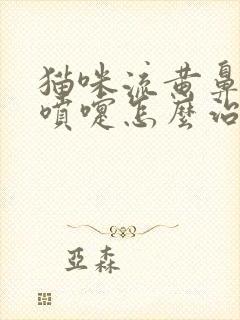 猫咪流黄鼻
喷嚏怎麼治
亞森